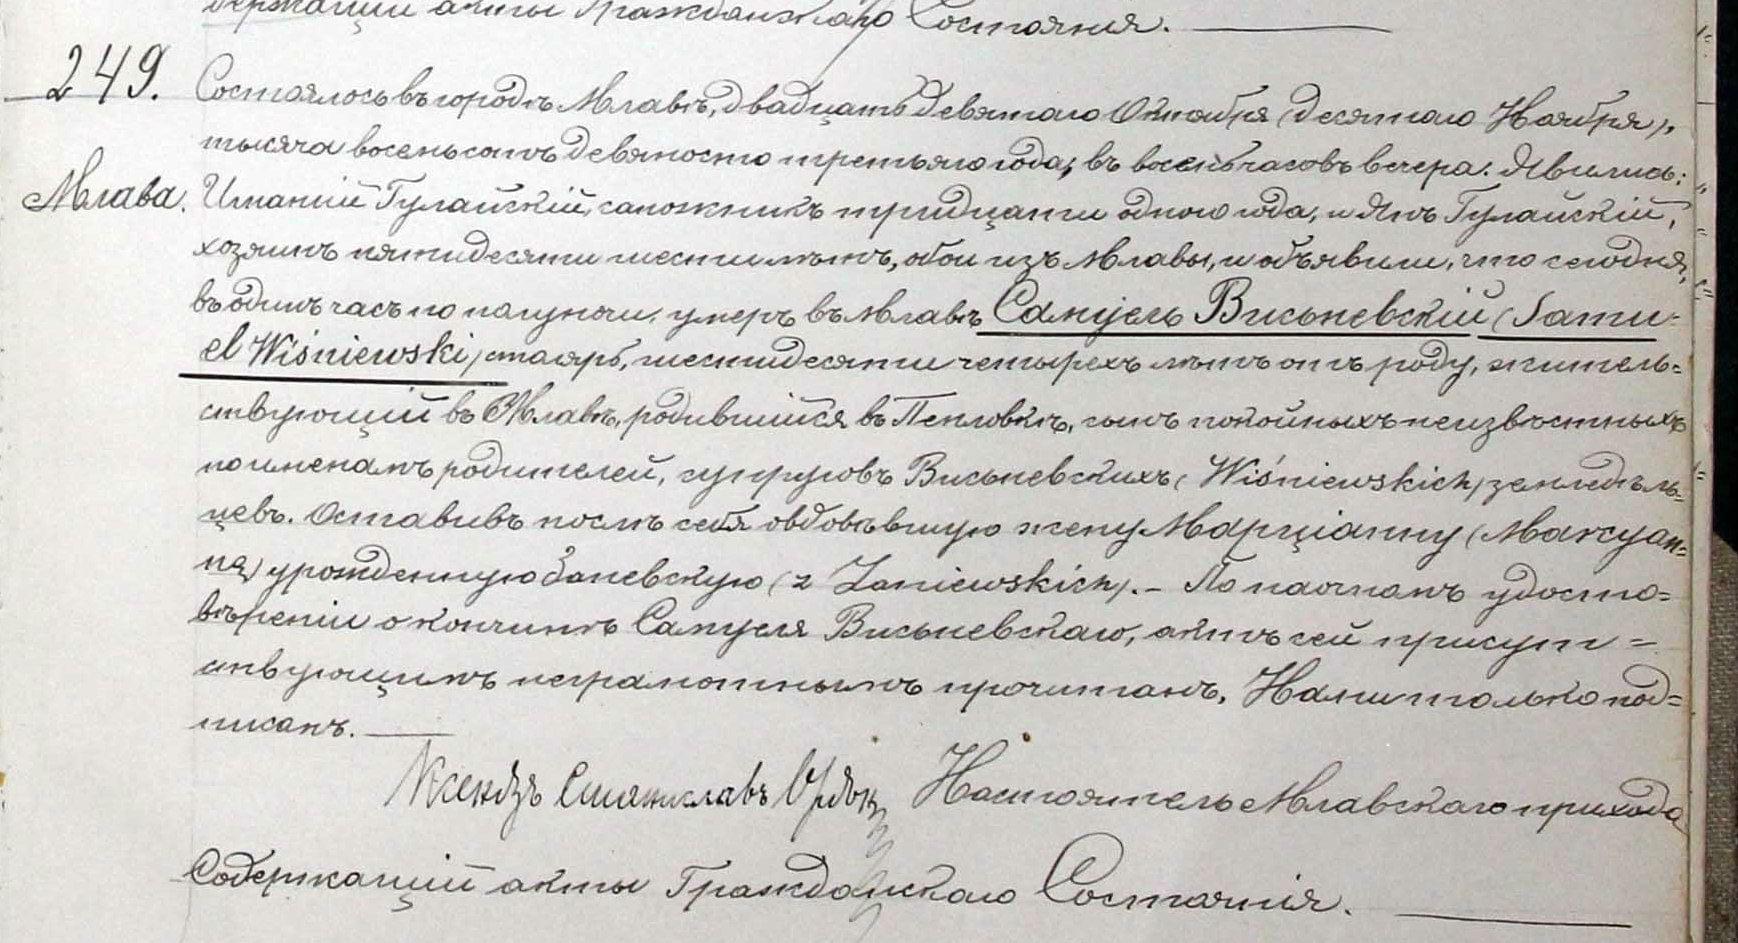 держащій акты Гражданскаго Состоянія.
249.
Состоялось въ городѣ Млавѣ, двадцать девятаго Октября (десятаго Ноября),
тысяча восемьсотъ девяносто третьяго года, въ восемь часовъ вечера. Явились:
Млава.
Игнатій Гулайскій, сапожникъ тридцати одного года, и Янъ Гулайскій,
хозяинъ пятидесяти шести лѣтъ, обои изъ Млавы, и объявили, что сегодня,
въ одинъ часъ по полуночи, умеръ въ Млавѣ Самуель Висьневскій (Samu-
el Wiśniewski) столяръ, шестидесяти четырехъ лѣтъ отъ роду, житель=
ствующій въ Млавѣ, родившійся въ Пепловкѣ, сынъ покойныхъ неизвѣстныхъ
по именамъ родителей, супруговъ Висьневскихъ (Wiśniewskich) земледѣль=
цевъ. Оставивъ послѣ себя овдовѣвшую жену Марціанну (Marcyan=
nę) урожденную Заневскую (z Zaniewskich). – По наочномъ удосто=
вѣреніи о кончинѣ Самуеля Висьневскаго, актъ сей присут=
ствующимъ неграмотнымъ прочитанъ, Нами только под=
писанъ.
Ксендзъ Станиславъ Настоятель Млавскаго прихода
Содержащій акты Гражданскаго Состоянія.